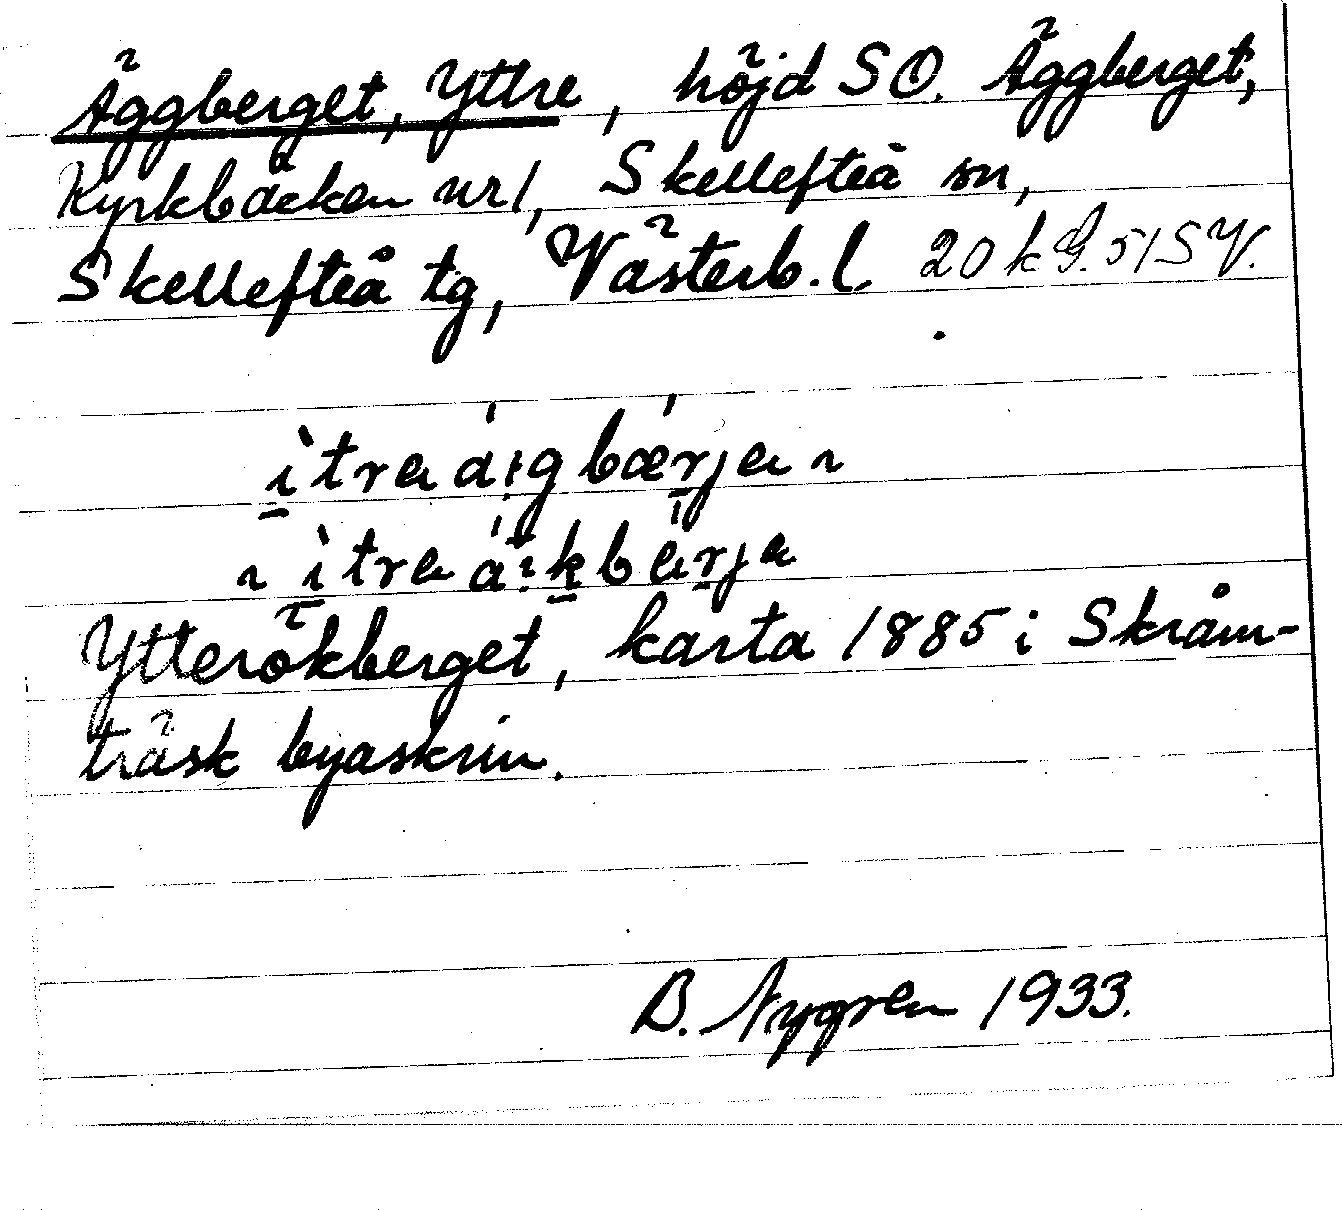 Äggberget, Yttre, höjd SO. Äggberget,
Kyrkbäcken nr 1, Skellefteå sn,
Skellefteå tg, Västerb. l. 20 k G. 51 SV.
ì̱tra á̤i̯g bǽr̠ja ~
~ ì̱tra á̤i̯k̠bár̠ja
Ytterökberget, karta 1885 i Skråm-
träsk byaskrin.
B. Nygren 1933.